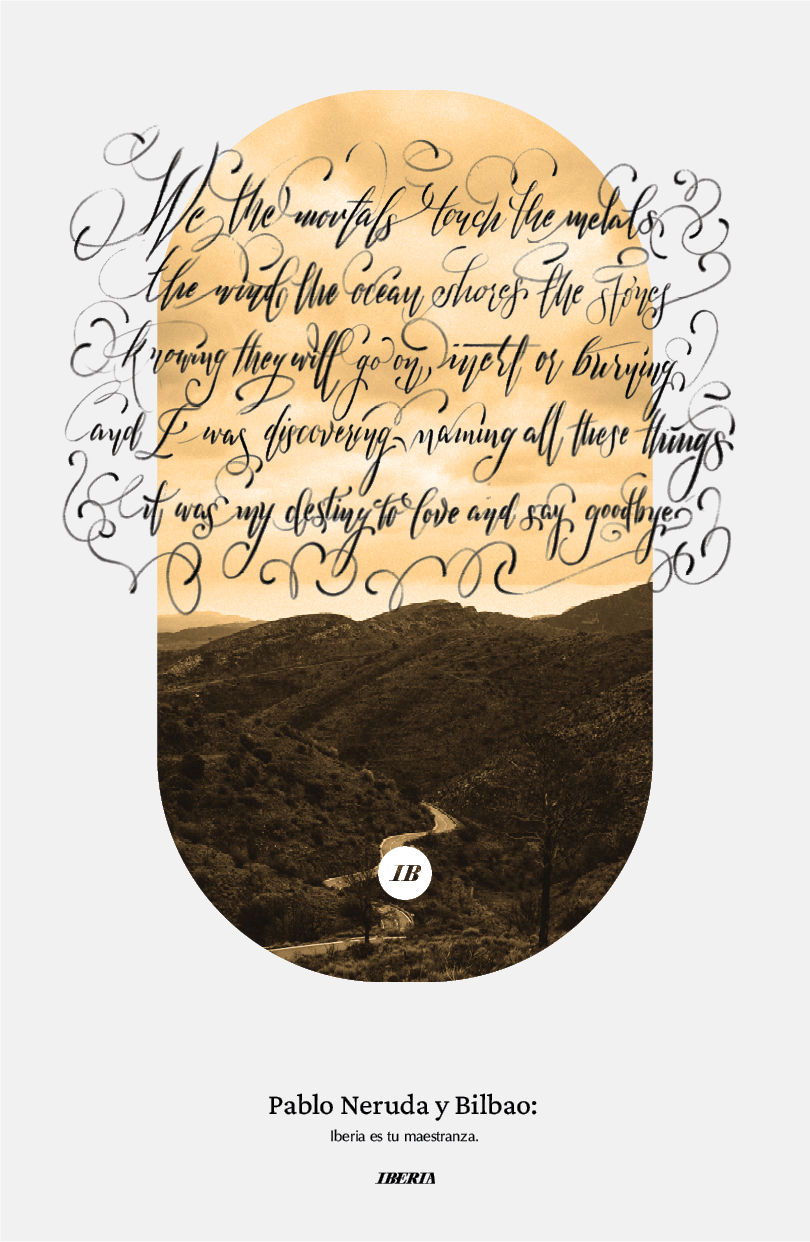 We the mortals touch the metals,
the wind, the ocean shores, the stones,
knowing they will go on, inert or burning,
and I was discovering, naming all these things:
it was my destiny to love and say goodbye.
IB
Pablo Neruda y Bilbao:
Iberia es tu maestranza.
IBERIA